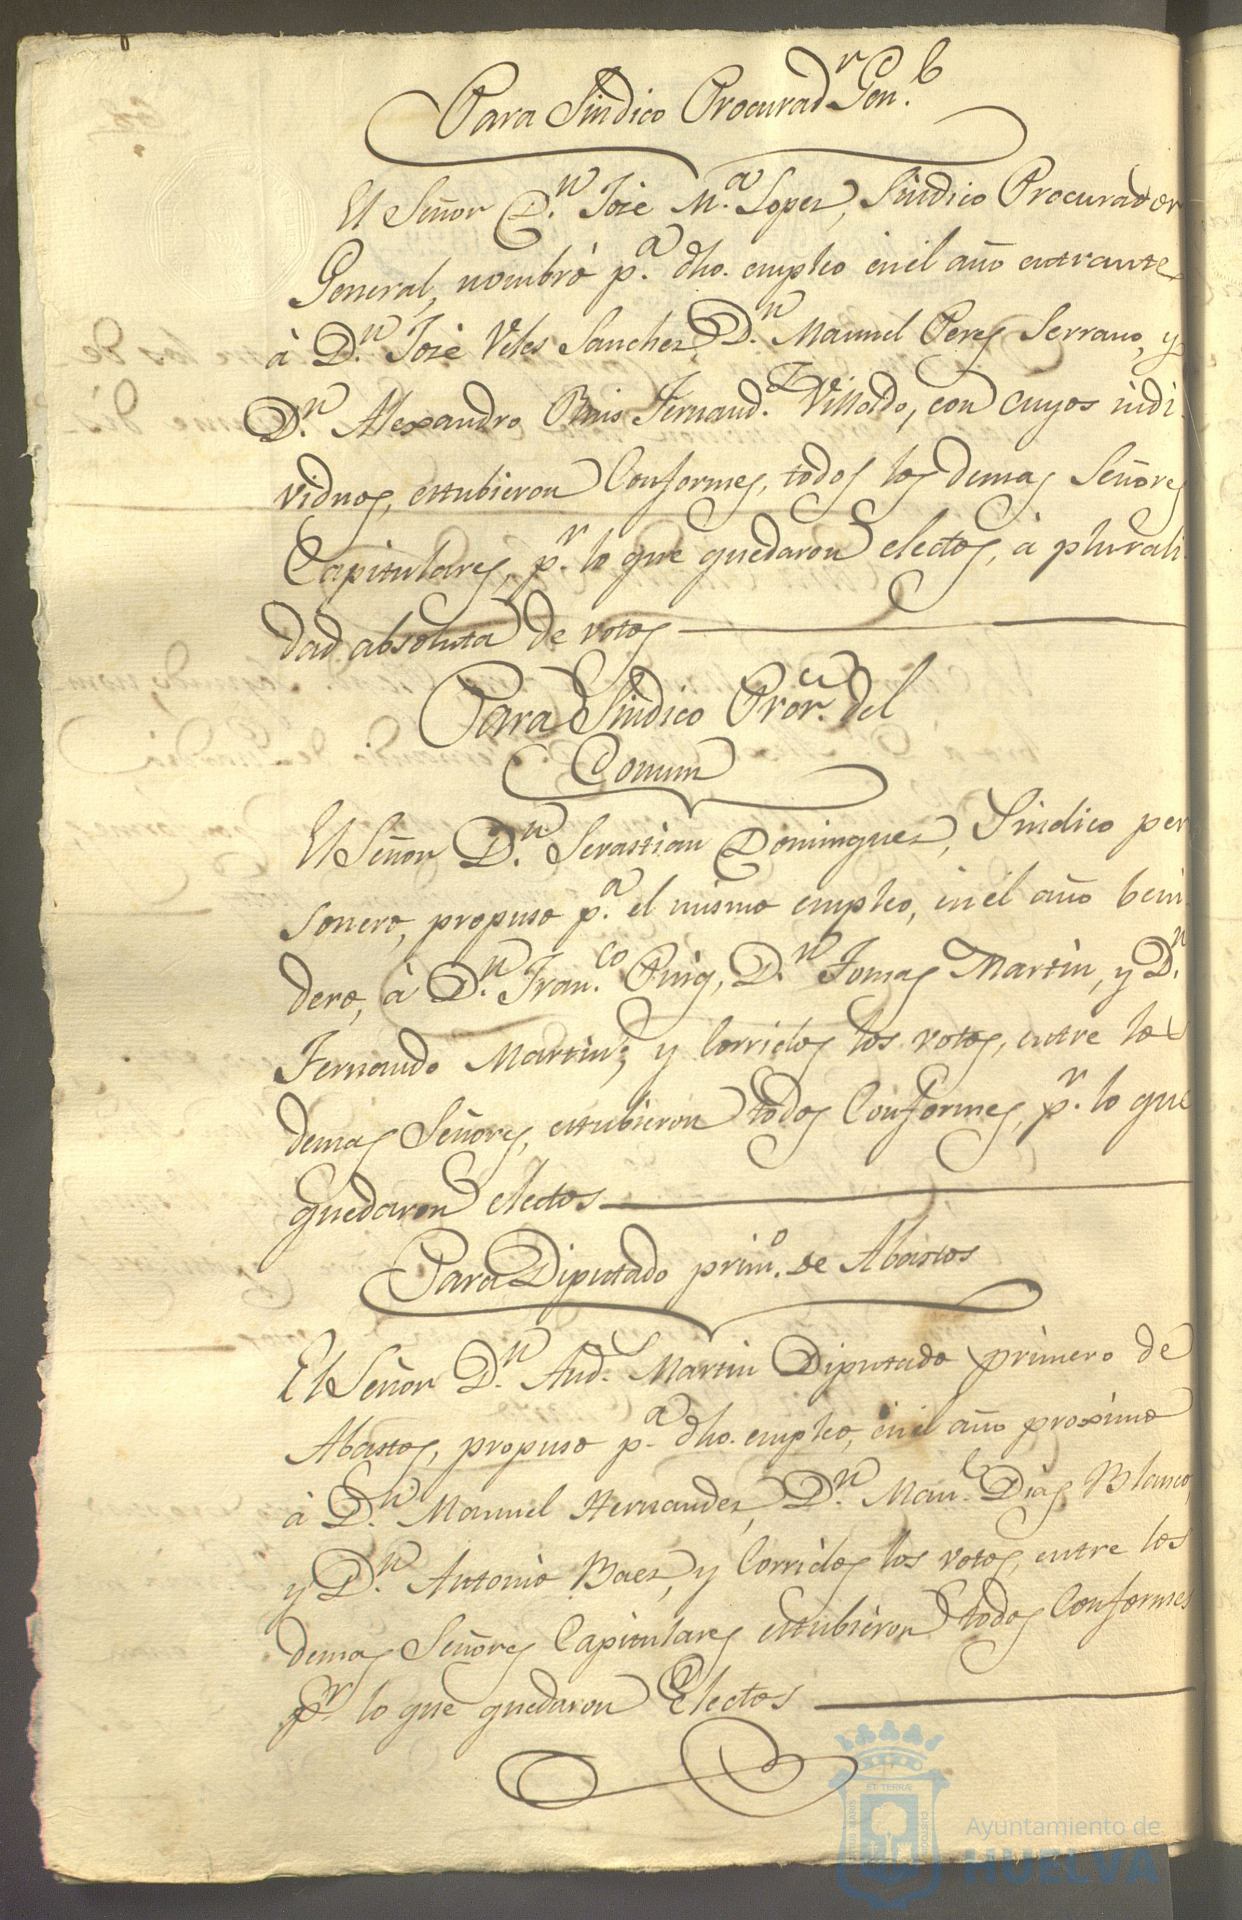 Para Sindico Procurad.r Gen.l
El Señor D.n Jose M.a Lopez, Sindico Procurador
General, nombrò p.a dho. empleo en el año entrante
à D.n Josè Veles Sanchez, D.n Manuel Peres Serrano, y
D.n Alexandro Ruis Fernand.z Villoldo, con cuyos indi-
viduos, estubieron Conformes, todos los demas Señores
Capitulares, p.r lo que quedaron electos, à plurali-
dad absoluta de votos
Para Sindico Pror. del
Comun
El Señor D.n Sevastian Dominguez, Sindico per
sonero, propuso p.a el mismo empleo, en el año beni
dero, à D.n Fran.co Puig, D.n Tomas Martin, y D.n
Fernando Martin; y Corridos los votos, entre los
demas Señores, estubieron todos Conformes, p.r lo que
quedaron electos
Para Diputado prim.o de Abastos
El Señor D.n And.s Martin Diputado primero de
Abastos, propuso p.a dho. empleo, en el año proximo
à D.n Manuel Hernandez, D.n Man.l Dias Blanco,
y D.n Antonio Baez, y Corridos los votos, entre los
demas Señores Capitulares estubieron todos Conformes
p.r lo que quedaron Electos
Ayuntamiento de
HUELVA